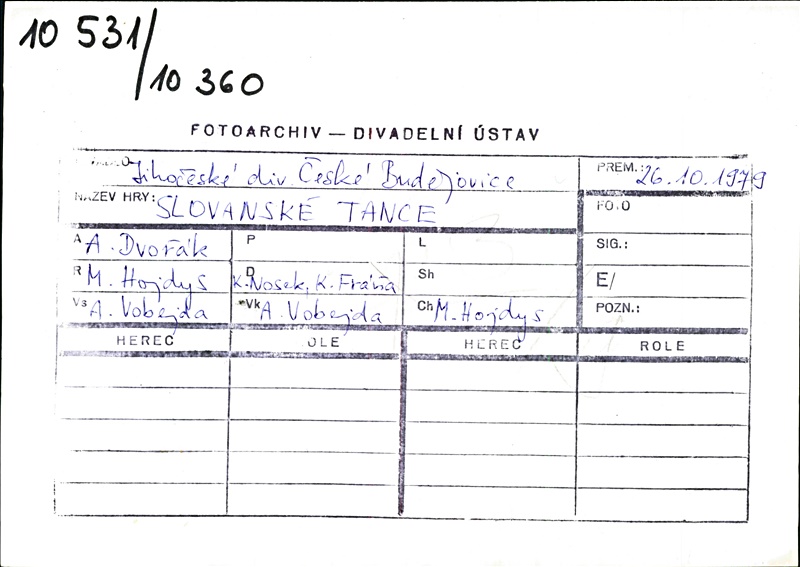 10 531/
10 360
FOTOARCHIV — DIVADELNÍ ÚSTAV
Jihočeské div. České Budějovice
PREM.: 26.10.1979
NÁZEV HRY: SLOVANSKÉ TANCE
FOTO
A A. Dvořák P L SIG.:
R M. Hojdys D K. Nosek, K. Fráňa Sh E/
Vs A. Vobejda Vk A. Vobejda Ch M. Hojdys POZN.:
HEREC ROLE HEREC ROLE